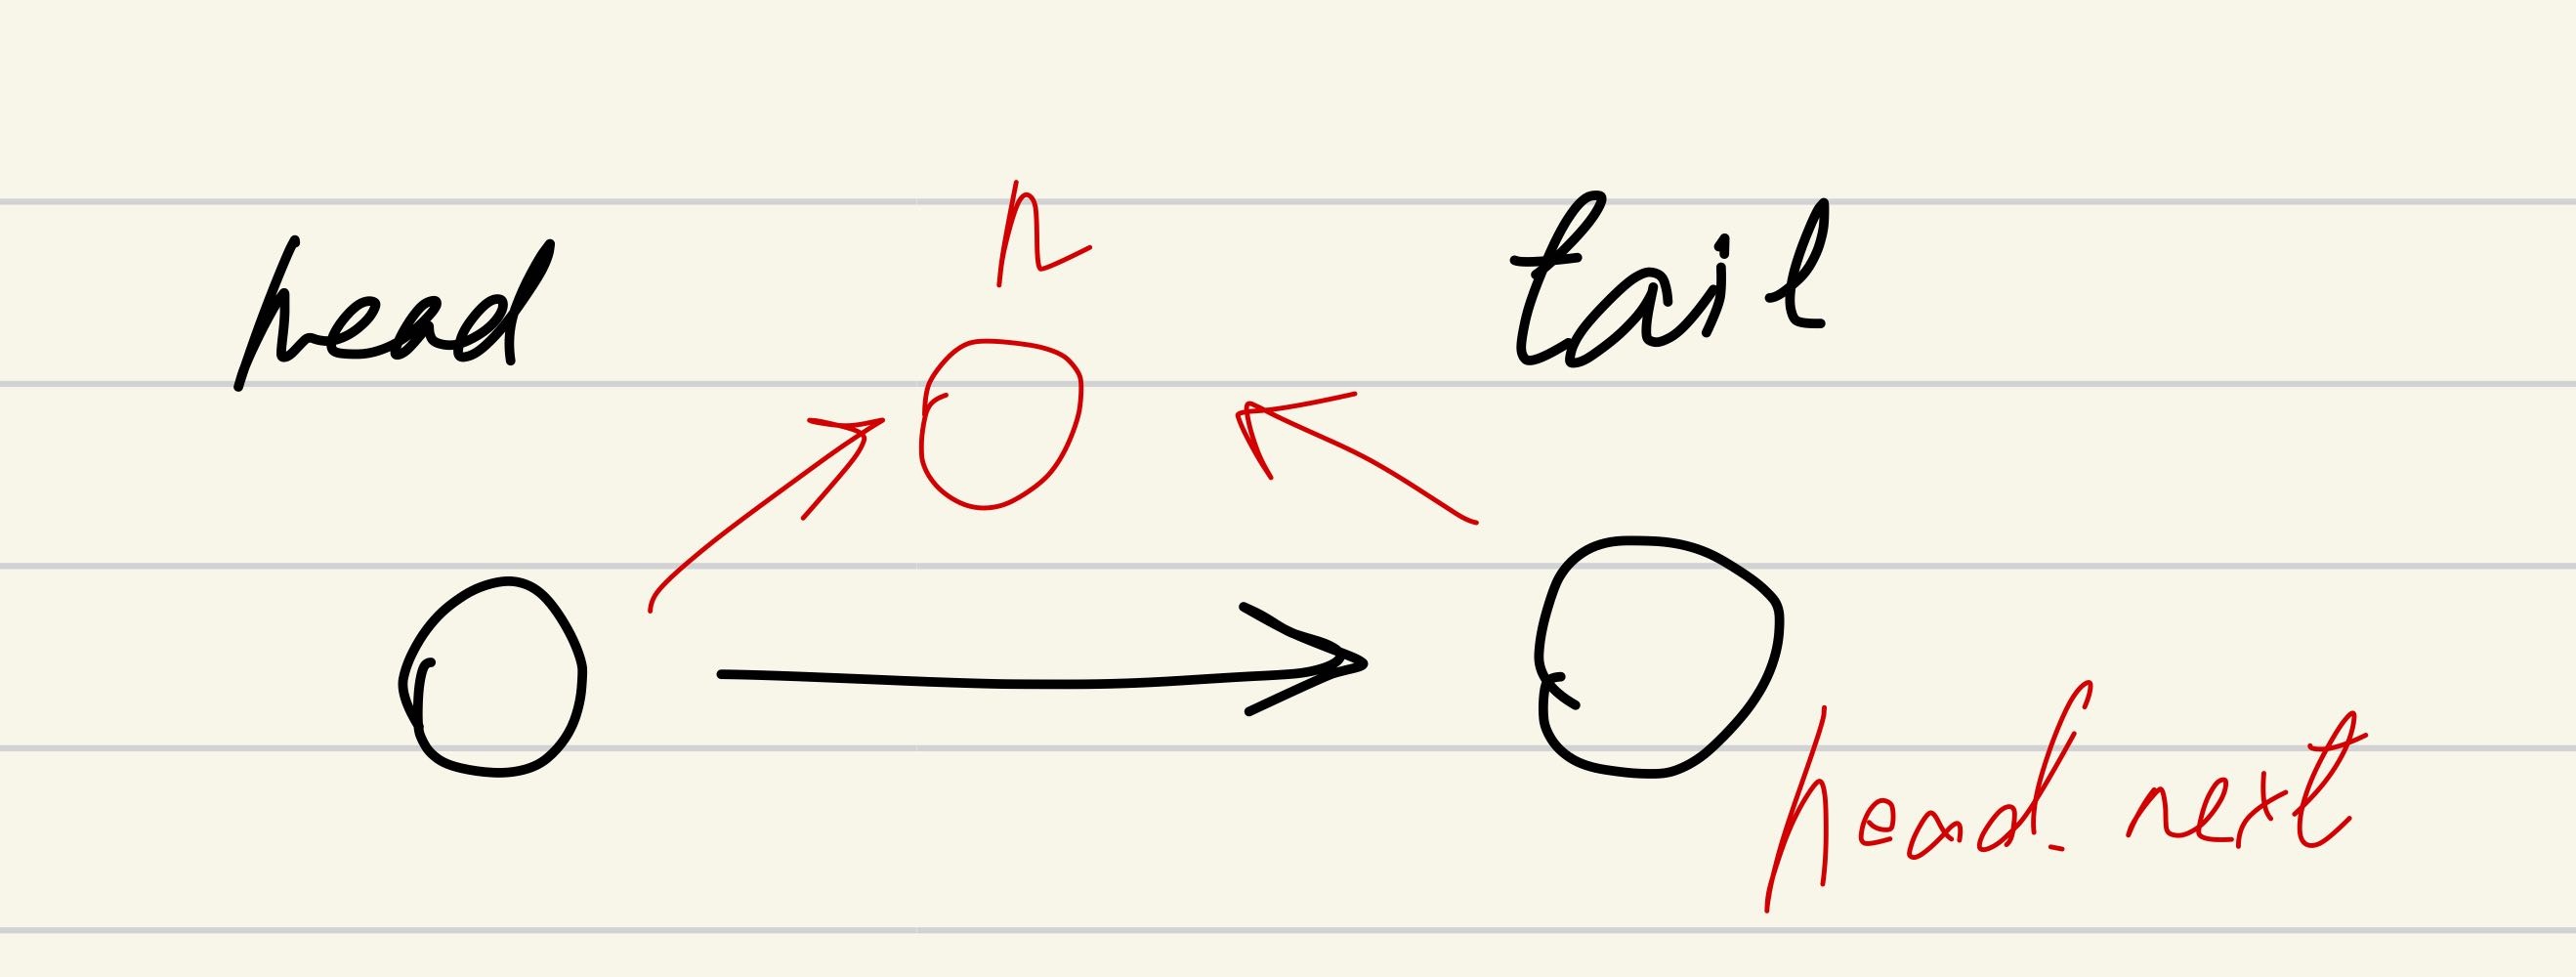 head n tail
head.next